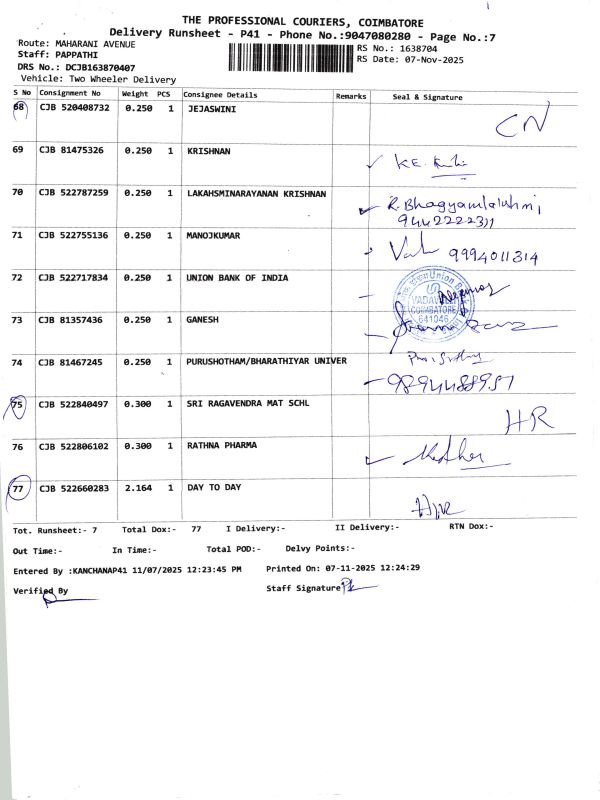 THE PROFESSIONAL COURIERS, COIMBATORE
Delivery Runsheet - P41 - Phone No.:9047080280 - Page No.:7
Route: MAHARANI AVENUE
RS No.: 1638704
Staff: PAPPATHI
RS Date: 07-Nov-2025
DRS No.: DCJB163870407
Vehicle: Two Wheeler Delivery
S No Consignment No Weight PCS Consignee Details Remarks Seal & Signature
68 CJB 520408732 0.250 1 JEJASWINI CN
69 CJB 81475326 0.250 1 KRISHNAN K.E.
70 CJB 522787259 0.250 1 LAKAHSMINARAYANAN KRISHNAN R.Bhagyamlakshmi
9442222311
71 CJB 522755136 0.250 1 MANOJKUMAR 9994011314
72 CJB 522717834 0.250 1 UNION BANK OF INDIA
Union
COIMBATORE
641046
73 CJB 81357436 0.250 1 GANESH
74 CJB 81467245 0.250 1 PURUSHOTHAM/BHARATHIYAR UNIVER
75 CJB 522840497 0.300 1 SRI RAGAVENDRA MAT SCHL HR
76 CJB 522806102 0.300 1 RATHNA PHARMA
77 CJB 522660283 2.164 1 DAY TO DAY
Tot. Runsheet:- 7 Total Dox:- 77 I Delivery:- II Delivery:- RTN Dox:-
Out Time:- In Time:- Total POD:- Delvy Points:-
Entered By :KANCHANAP41 11/07/2025 12:23:45 PM Printed On: 07-11-2025 12:24:29
Verified By Staff Signature